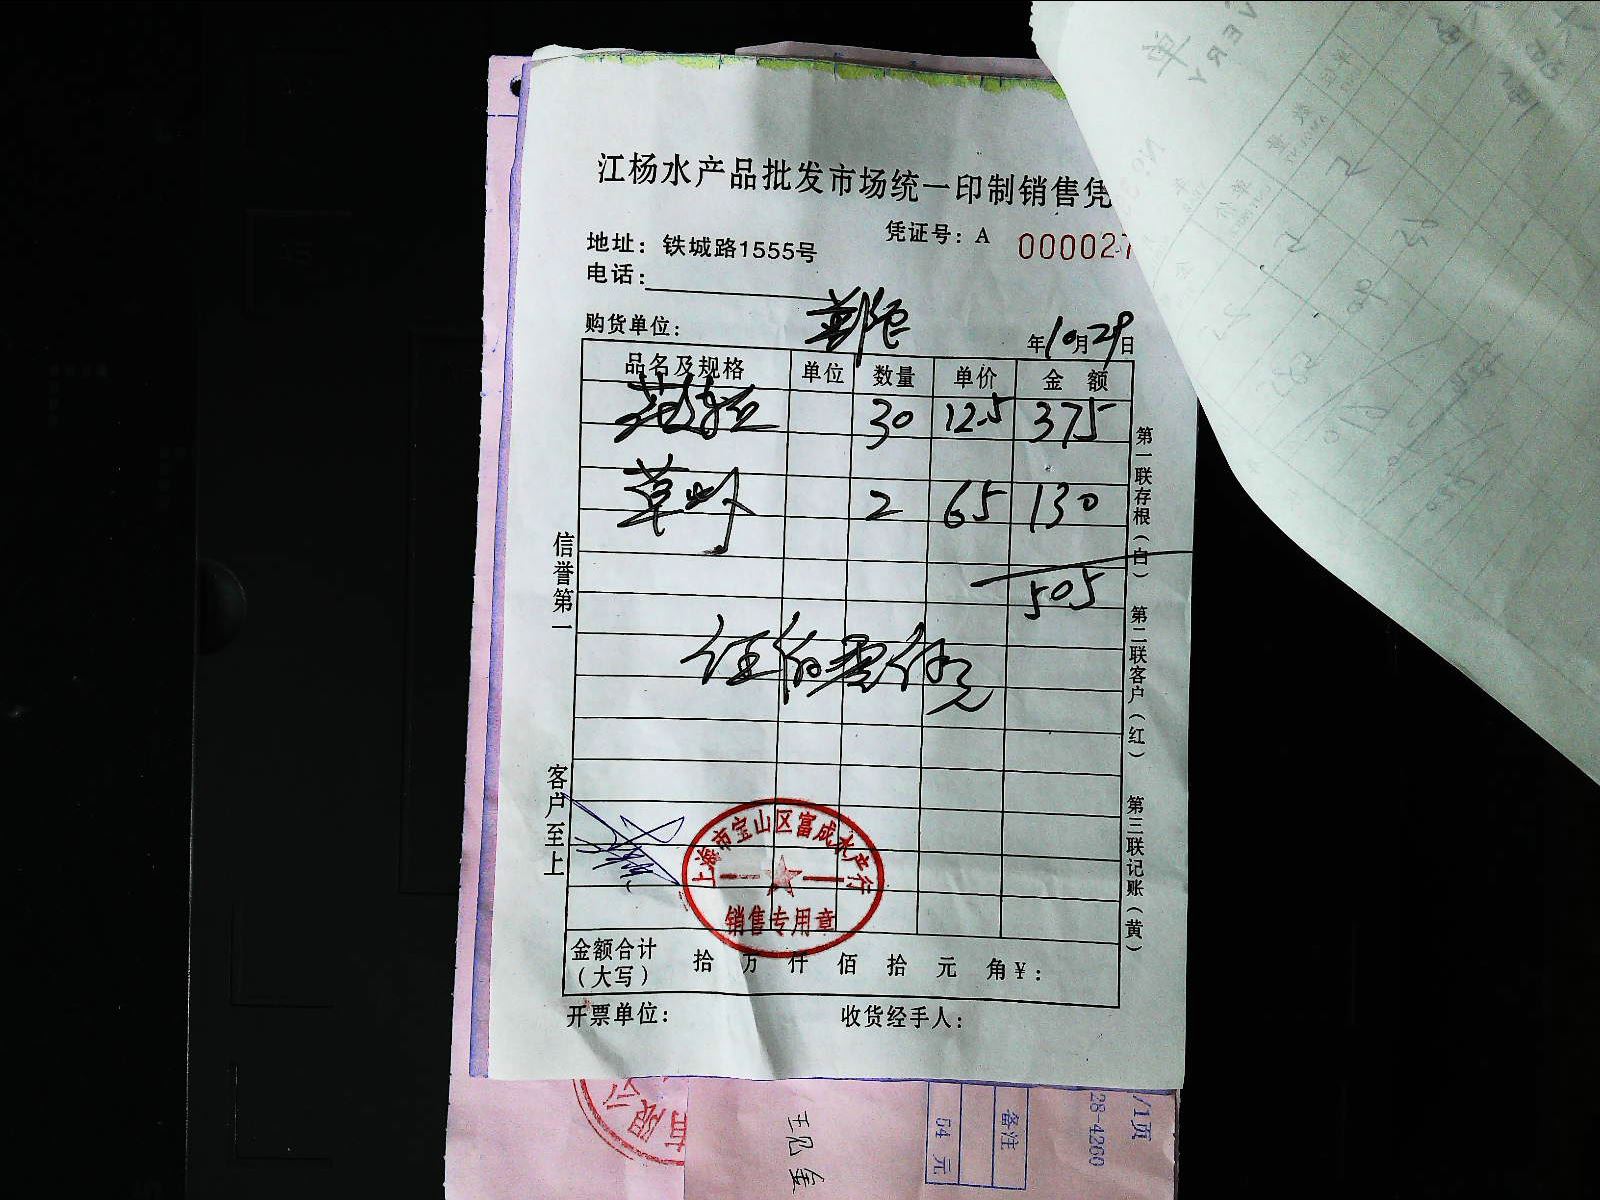 江杨水产品批发市场统一印制销售凭
凭证号：A 000027
地址：铁城路1555号
电话：
购货单位：
年10月29日
品名及规格 单位 数量 单价 金 额
30 12.5 375
草虾 2 65 130
505
伍佰零伍元
信誉第一
客户至上
第一联存根（白）
第二联客户（红）
第三联记账（黄）
上海市宝山区富成水产行
销售专用章
金额合计（大写） 拾 万 仟 佰 拾 元 角 ¥：
开票单位： 收货经手人：
备注
54 元
/1页
28-4260